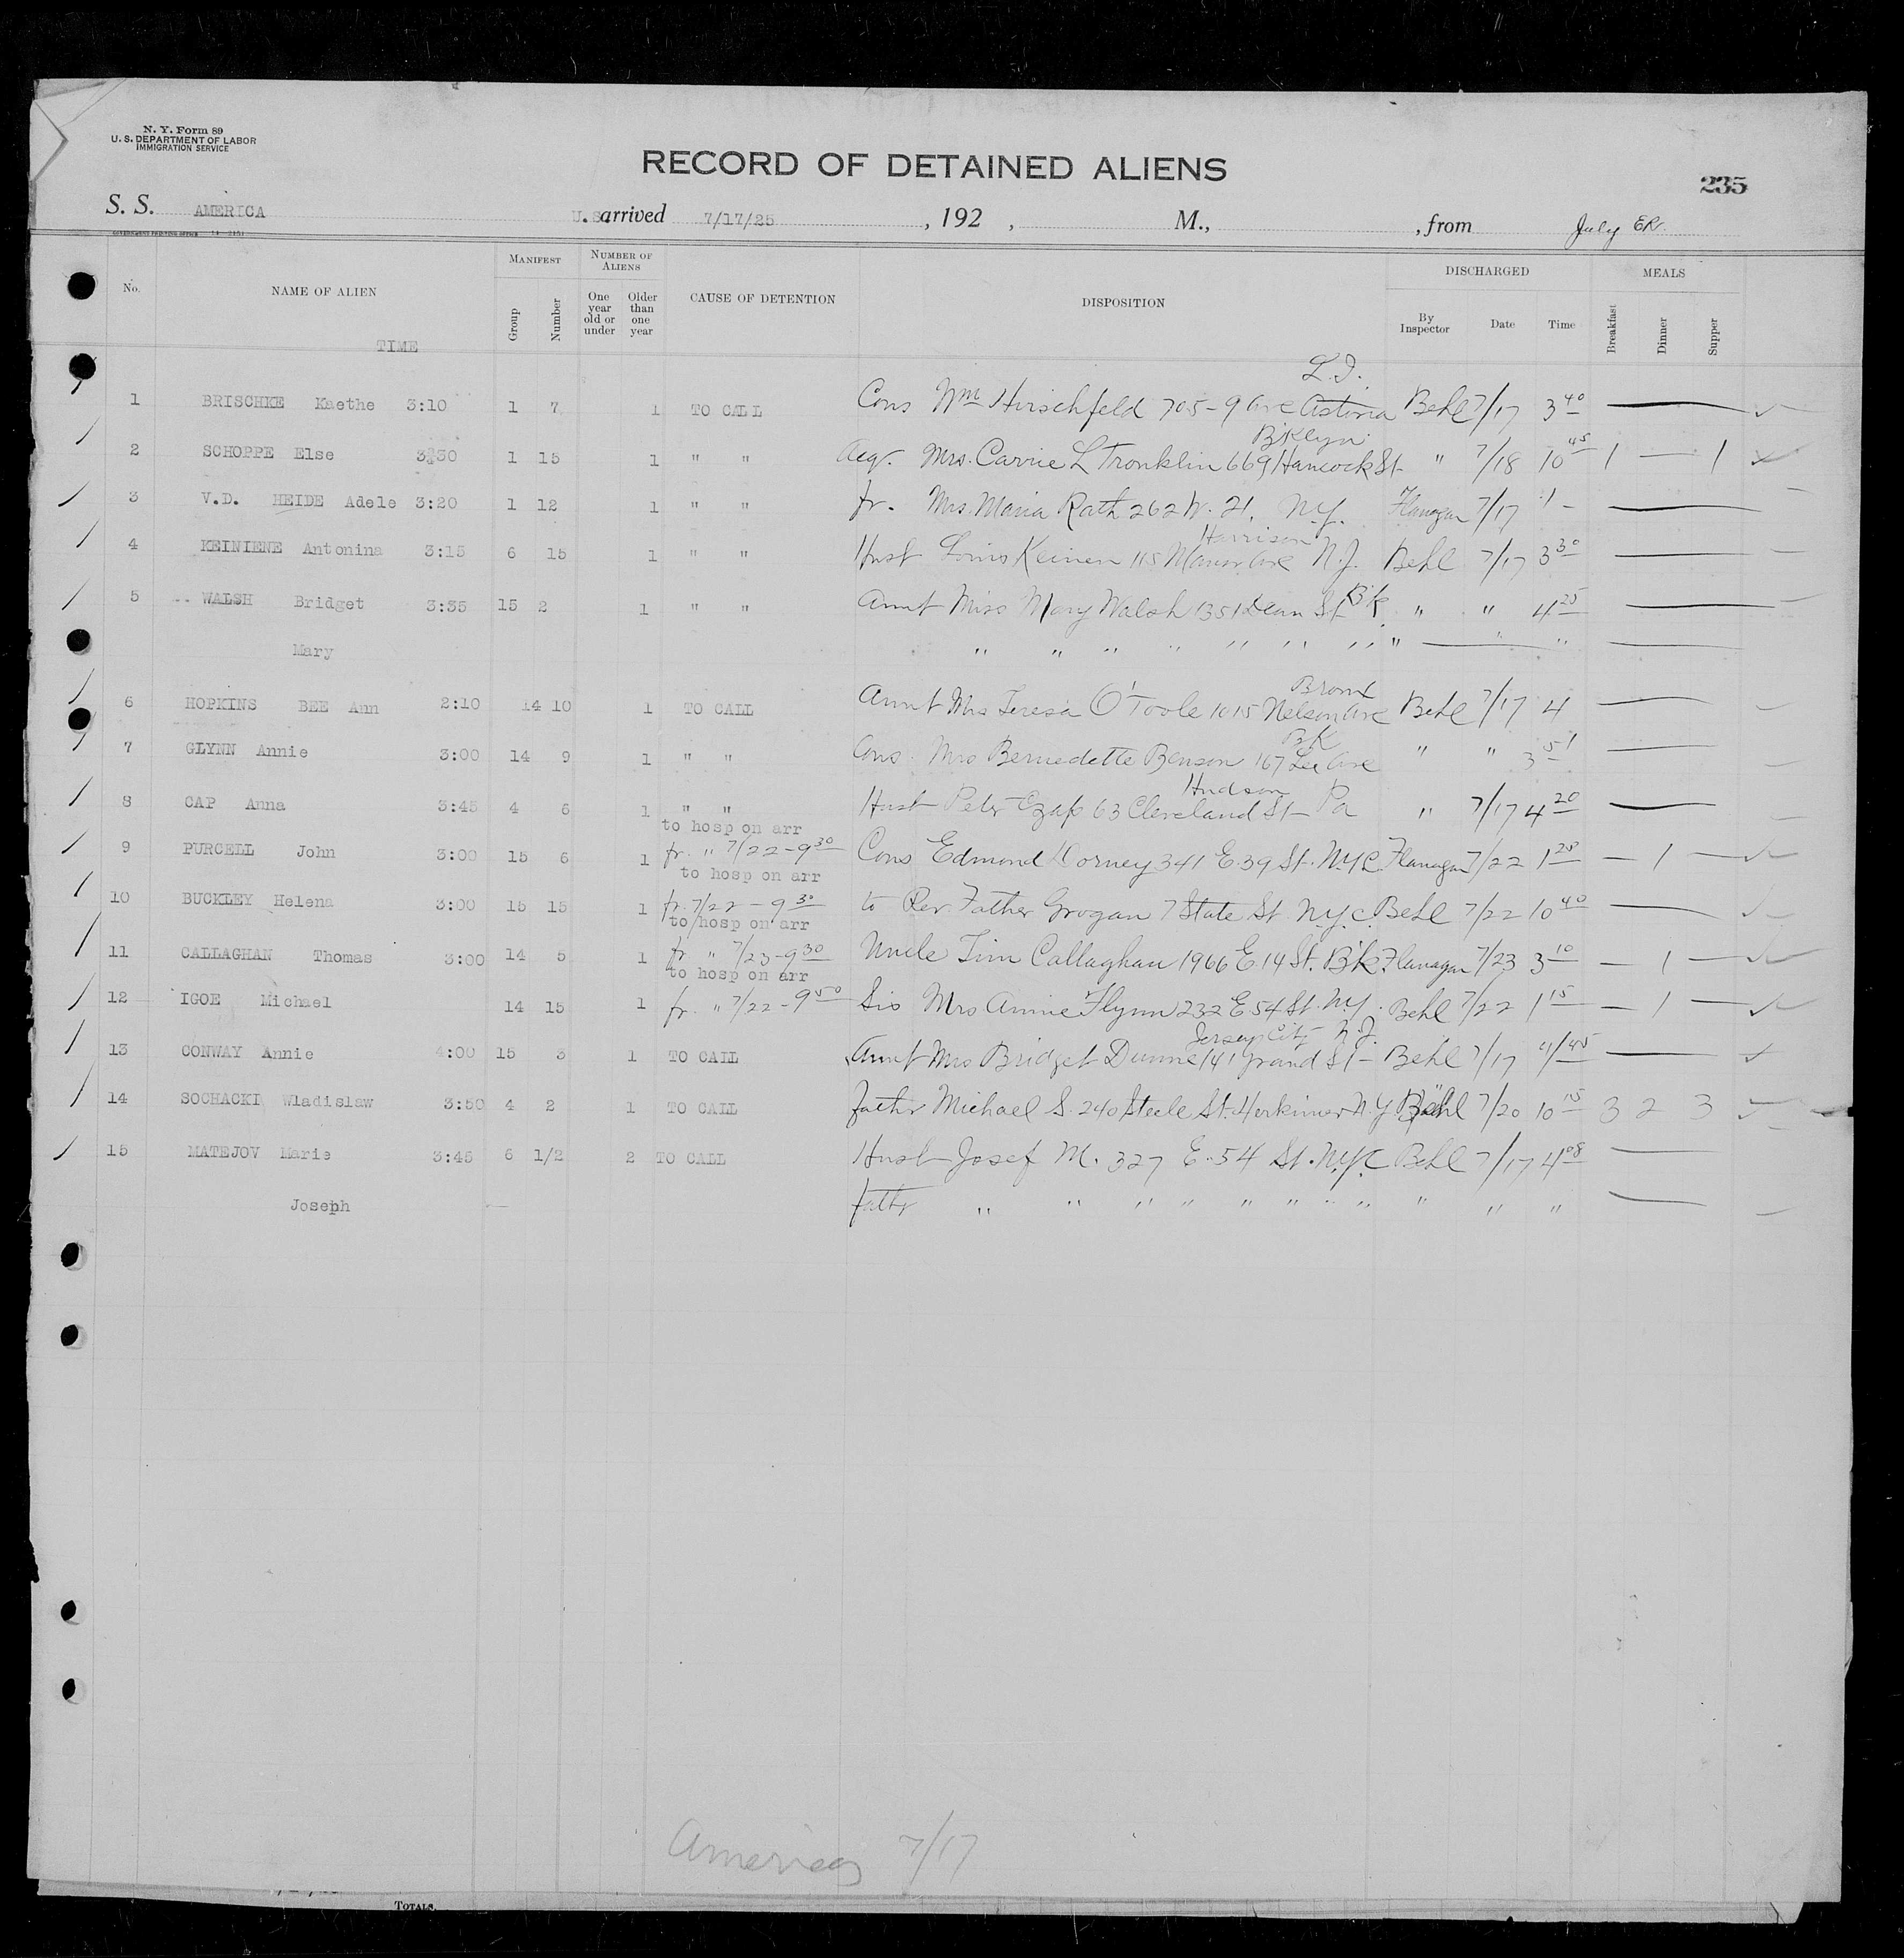 N. Y. Form 89
U. S. DEPARTMENT OF LABOR
IMMIGRATION SERVICE
RECORD OF DETAINED ALIENS
235
S. S. AMERICA U.S. arrived 7/17/25 , 192 , M., , from July ER
No. NAME OF ALIEN TIME MANIFEST Group Number NUMBER OF ALIENS One year old or under Older than one year CAUSE OF DETENTION DISPOSITION DISCHARGED By Inspector Date Time MEALS Breakfast Dinner Supper
L.I.
1 BRISCHKE Kaethe 3:10 1 7 1 TO CALL Cons Wm Hirschfeld 705-9 Ave Astoria Behl 7/17 3 40
B'klyn
2 SCHOPPE Else 3:30 1 15 1 " " Acq. Mrs. Carrie L Tronklin 669 Hancock St " 7/18 10 45 1 — 1
3 V.D. HEIDE Adele 3:20 1 12 1 " " fr. Mrs. Maria Rath 262 W. 21, N.Y. Flanagan 7/17
Harrison
4 KEINIENE Antonina 3:15 6 15 1 " " Husb Louis Keinen 115 Ave N.J. Behl 7/17 3 30
5 WALSH Bridget 3:35 15 2 1 " " Aunt Miss Mary Walsh 1351 Dean St B'k " " 4 25
Mary " " " " " " " " " "
Bronx
6 HOPKINS BEE Ann 2:10 14 10 1 TO CALL Aunt Mrs Teresa O'Toole 1015 Nelson Ave Behl 7/17 4
BK
7 GLYNN Annie 3:00 14 9 1 " " Cons. Mrs Bernedette Benson 167 Lee Ave " " 3 51
Hudson
8 CAP Anna 3:45 4 6 1 " " Husb Peter Czap 63 Cleveland St Pa " 7/17 4 20
to hosp on arr
9 PURCELL John 3:00 15 6 1 fr. " 7/22-9 30 Cons Edmond Dorney 341 E. 39 St. N.Y.C. Flanagan 7/22 1 20 — 1 —
to hosp on arr
10 BUCKLEY Helena 3:00 15 15 1 fr. 7/22-9 30 to Rev. Father Grogan 7 State St. N.Y.C. Behl 7/22 10 40
to hosp on arr
11 CALLAGHAN Thomas 3:00 14 5 1 fr " 7/23-9 30 Uncle Tim Callaghan 1966 E. 14 St. B'k Flanagan 7/23 3 10 — 1 —
to hosp on arr
12 IGOE Michael 14 15 1 fr. " 7/22-9 50 Sis Mrs. Annie Flynn 232 E 54 St. N.Y. Behl 7/22 1 15 — 1 —
Jersey City N.J.
13 CONWAY Annie 4:00 15 3 1 TO CALL Aunt Mrs Bridget Dunne 141 Grand St Behl 7/17 4/45
14 SOCHACKI Wladislaw 3:50 4 2 1 TO CALL Father Michael S. 240 Steele St. Herkimer N.Y Behl 7/20 10 15 3 2 3
15 MATEJOV Marie 3:45 6 1/2 2 TO CALL Husb Josef M. 327 E. 54 St. N.Y.C Behl 7/17 4 08
Joseph — Fathr " " " " " " " " " " "
America 7/17
TOTALS